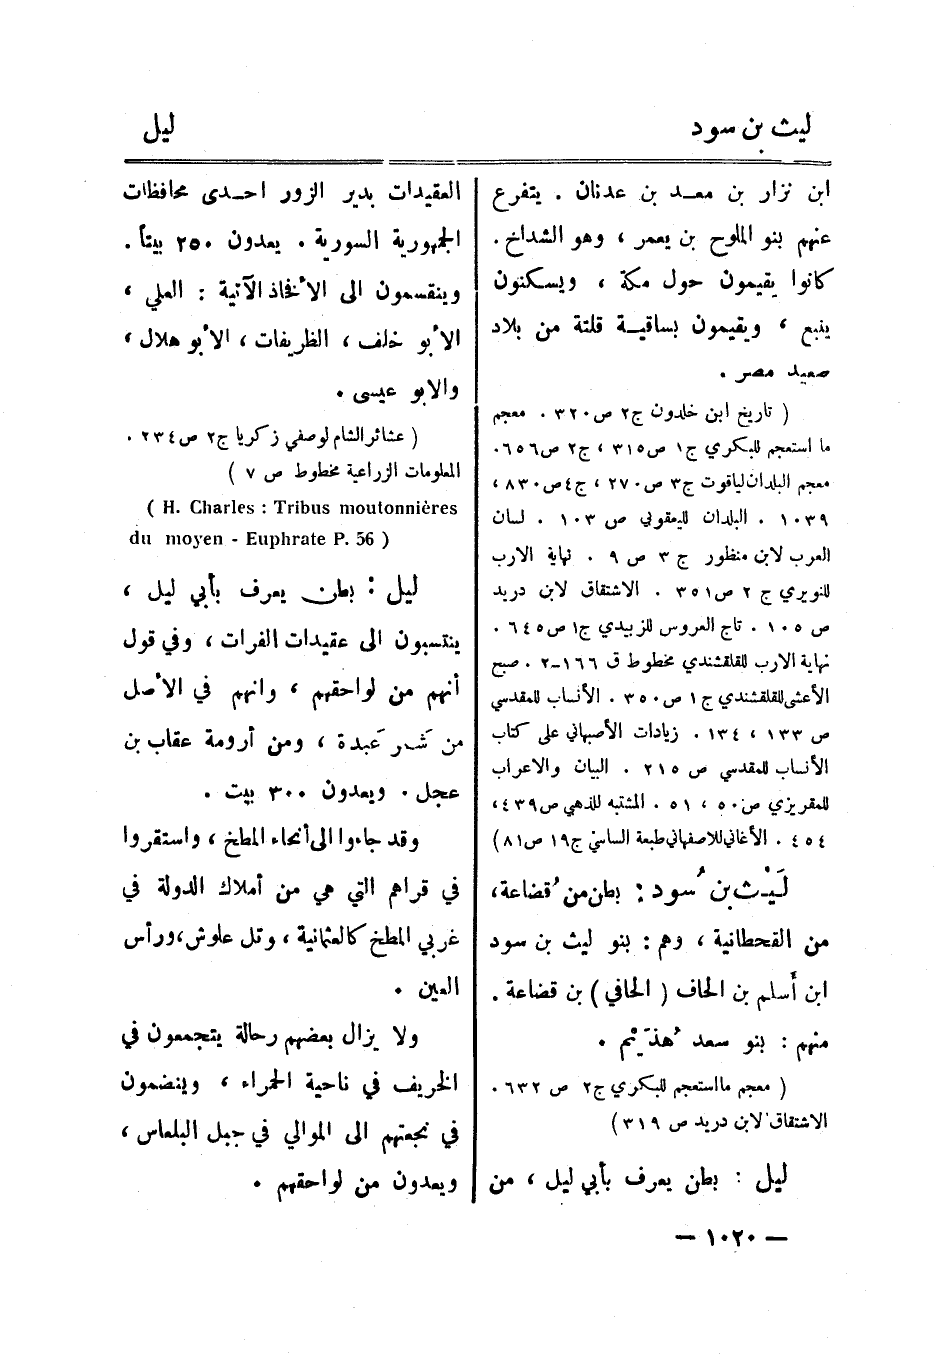 ليث بن سود
ليل
ابن نزار بن معد بن عدنان . يتفرع
عنهم بنو الملوح بن يعمر ، وهو الشداخ.
كانوا يقيمون حول مكة ، ويسكنون
ينبع ، ويقيمون بساقية قلتة من بلاد
صعيد مصر .
( تاريخ ابن خلدون ج٢ ص٣٢٠ . معجم
ما استعجم للبكري ج١ ص٣١٥ ، ج٢ ص٦٥٦.
معجم البلدان لياقوت ج٣ ص٢٧٠ ، ج٤ ص٨٣٠ ،
١٠٣٩ . البلدان لليعقوبي ص ١٠٣ . لسان
العرب لابن منظور ج ٣ ص ٩ . نهاية الارب
للنويري ج ٢ ص٣٥١ . الاشتقاق لابن دريد
ص ١٠٥ . تاج العروس للزبيدي ج١ ص٦٤٥ .
نهاية الارب للقلقشندي مخطوط ق ١٦٦-٢ . صبح
الأعشى للقلقشندي ج١ ص٣٥٠ . الأنساب للمقدسي
ص ١٣٣ ، ١٣٤ . زيادات الأصبهاني على كتاب
الأنساب للمقدسي ص ٢١٥ . البيان والاعراب
للمقريزي ص٥٠ ، ٥١ . المشتبه للذهبي ص٤٣٩،
٤٥٤ . الأغاني للاصفهاني طبعة الساسي ج١٩ ص٨١)
لَيْث بن سُود : بطن من قُضاعة،
من القحطانية ، وهم : بنو ليث بن سود
ابن أَسلم بن الحاف ( الحافي ) بن قضاعة .
منهم : بنو سعد هُذَيْم .
( معجم ما استعجم للبكري ج٢ ص ٦٣٢ .
الاشتقاق لابن دريد ص ٣١٩ )
ليل : بطن يعرف بأبي ليل ، من
العقيدات بدير الزور احدى محافظات
الجمهورية السورية . يعدون ٢٥٠ بيتاً .
وينقسمون الى الأفخاذ الآتية : العلي ،
الأبو خلف ، الظريفات ، الأبو هلال ،
والابو عيسى .
( عشائر الشام لوصفي زكريا ج٢ ص٢٣٤ .
المعلومات الزراعية مخطوط ص ٧ )
( H. Charles : Tribus moutonnières
du moyen - Euphrate P. 56 )
ليل : بطن يعرف بأبي ليل ،
ينتسبون الى عقيدات الفرات ، وفي قول
أنهم من لواحقهم ، وانهم في الأصل
من شمر عَبدة ، ومن أرومة عقاب بن
عجل . ويعدون ٣٠٠ بيت .
وقد جاءوا الى أنحاء المطخ ، واستقروا
في قراهم التي هي من أملاك الدولة في
غربي المطخ كالعثمانية ، وتل علوش، ورأس
العين .
ولا يزال بعضهم رحالة يتجمعون في
الخريف في ناحية الحمراء ، وينضمون
في نجعتهم الى الموالي في جبل البلعاس ،
ويعدون من لواحقهم .
— ١٠٢٠ —